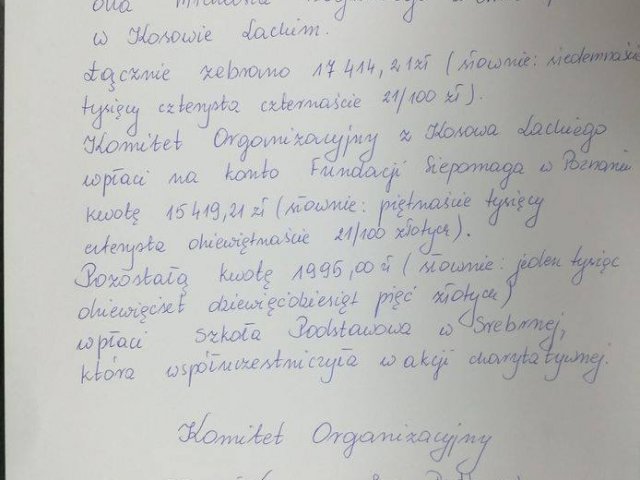 dla
w Kosowie Lackim.
Łącznie zebrano 17 414,21 zł (słownie: siedemnaście
tysięcy czterysta czternaście 21/100 zł).
Komitet Organizacyjny z Kosowa Lackiego
wpłaci na konto Fundacji Siepomaga w Poznaniu
kwotę 15 419,21 zł (słownie: piętnaście tysięcy
czterysta dziewiętnaście 21/100 złotych).
Pozostałą kwotę 1995,00 zł (słownie: jeden tysiąc
dziewięćset dziewięćdziesiąt pięć złotych)
wpłaci Szkoła Podstawowa w Srebrnej,
która współuczestniczyła w akcji charytatywnej.
Komitet Organizacyjny